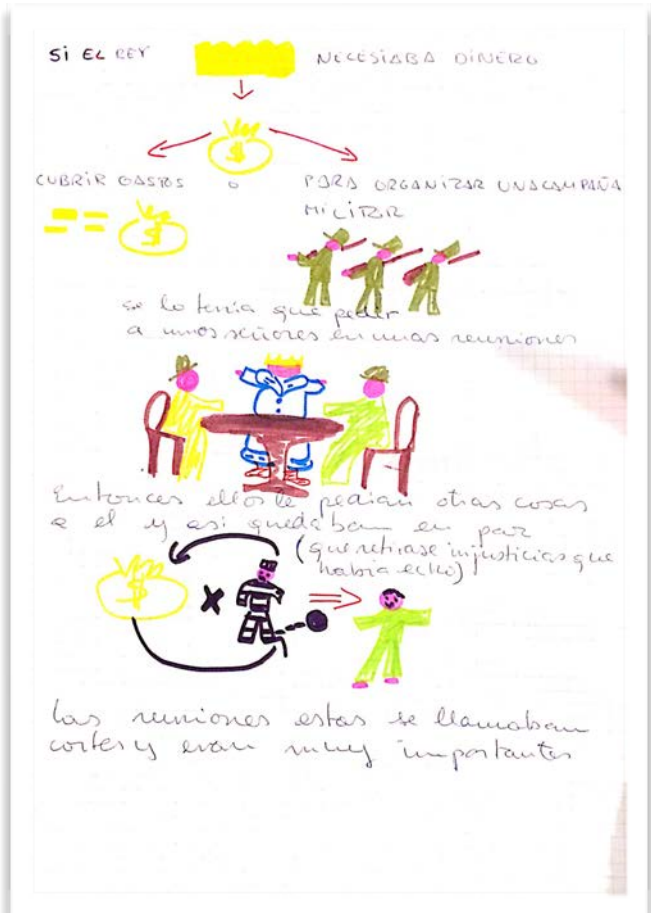 Si EL REY NECESIABA DINERO
$
CUBRIR GASTOS o PARA ORGANIZAR UNACAMPAÑA
MILITAR
$
se lo tenia que pedir
a unos señores en unas reuniones
Entonces ellos le pedian otras cosas
a el y asi quedaban en paz
(que retirase injusticias que
habia echo)
$ x
Las reuniones estas se llamaban
cortes y eran muy importantes